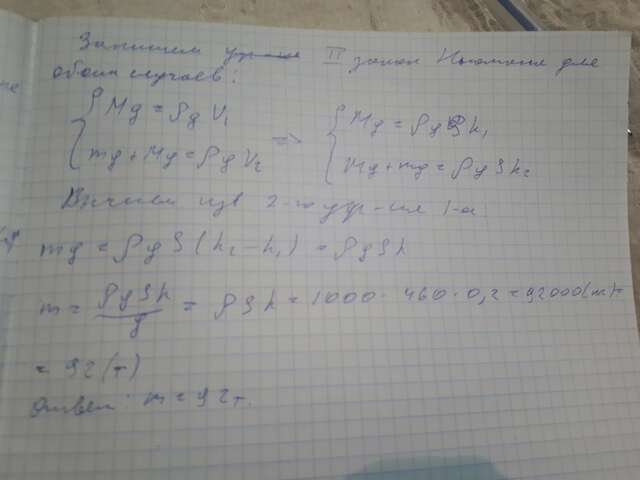 Запишем II закон Ньютона для
обоих случаев:
{ Mg = ρgV₁
{ mg + Mg = ρgV₂
=> { Mg = ρgSh₁
{ Mg + mg = ρgSh₂
Вычтем из 2-го ур-ия 1-ое
mg = ρgS(h₂ - h₁) = ρgSh
m = ρgSh/g = ρSh = 1000 · 460 · 0,2 = 92000(кг)=
= 92(т)
Ответ: m = 92т.